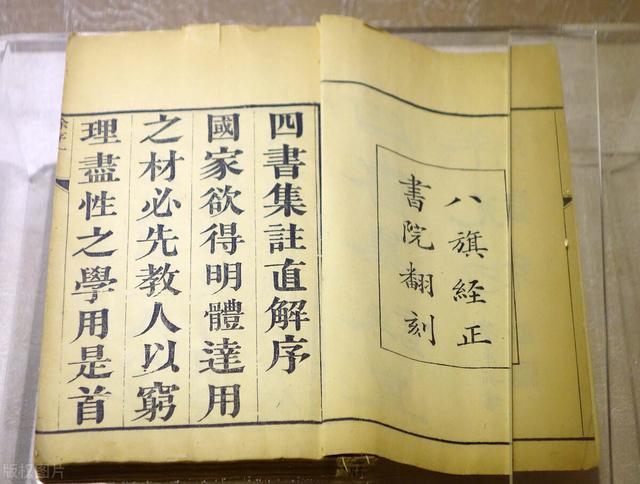 八旗経正
書院翻刻
四書集註直解序
國家欲得明體達用
之材必先教人以窮
理盡性之學用是首
版权图片